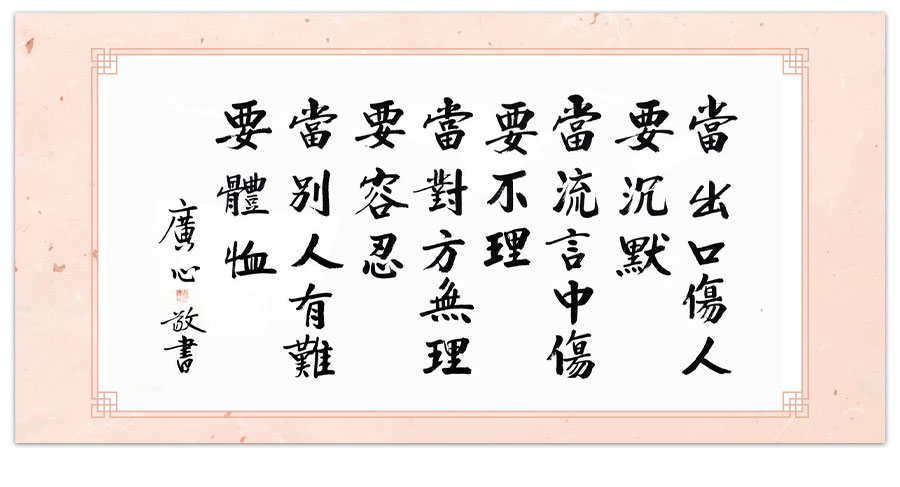 當出口傷人
要沉默
當流言中傷
要不理
當對方無理
要容忍
當別人有難
要體恤
廣心敬書